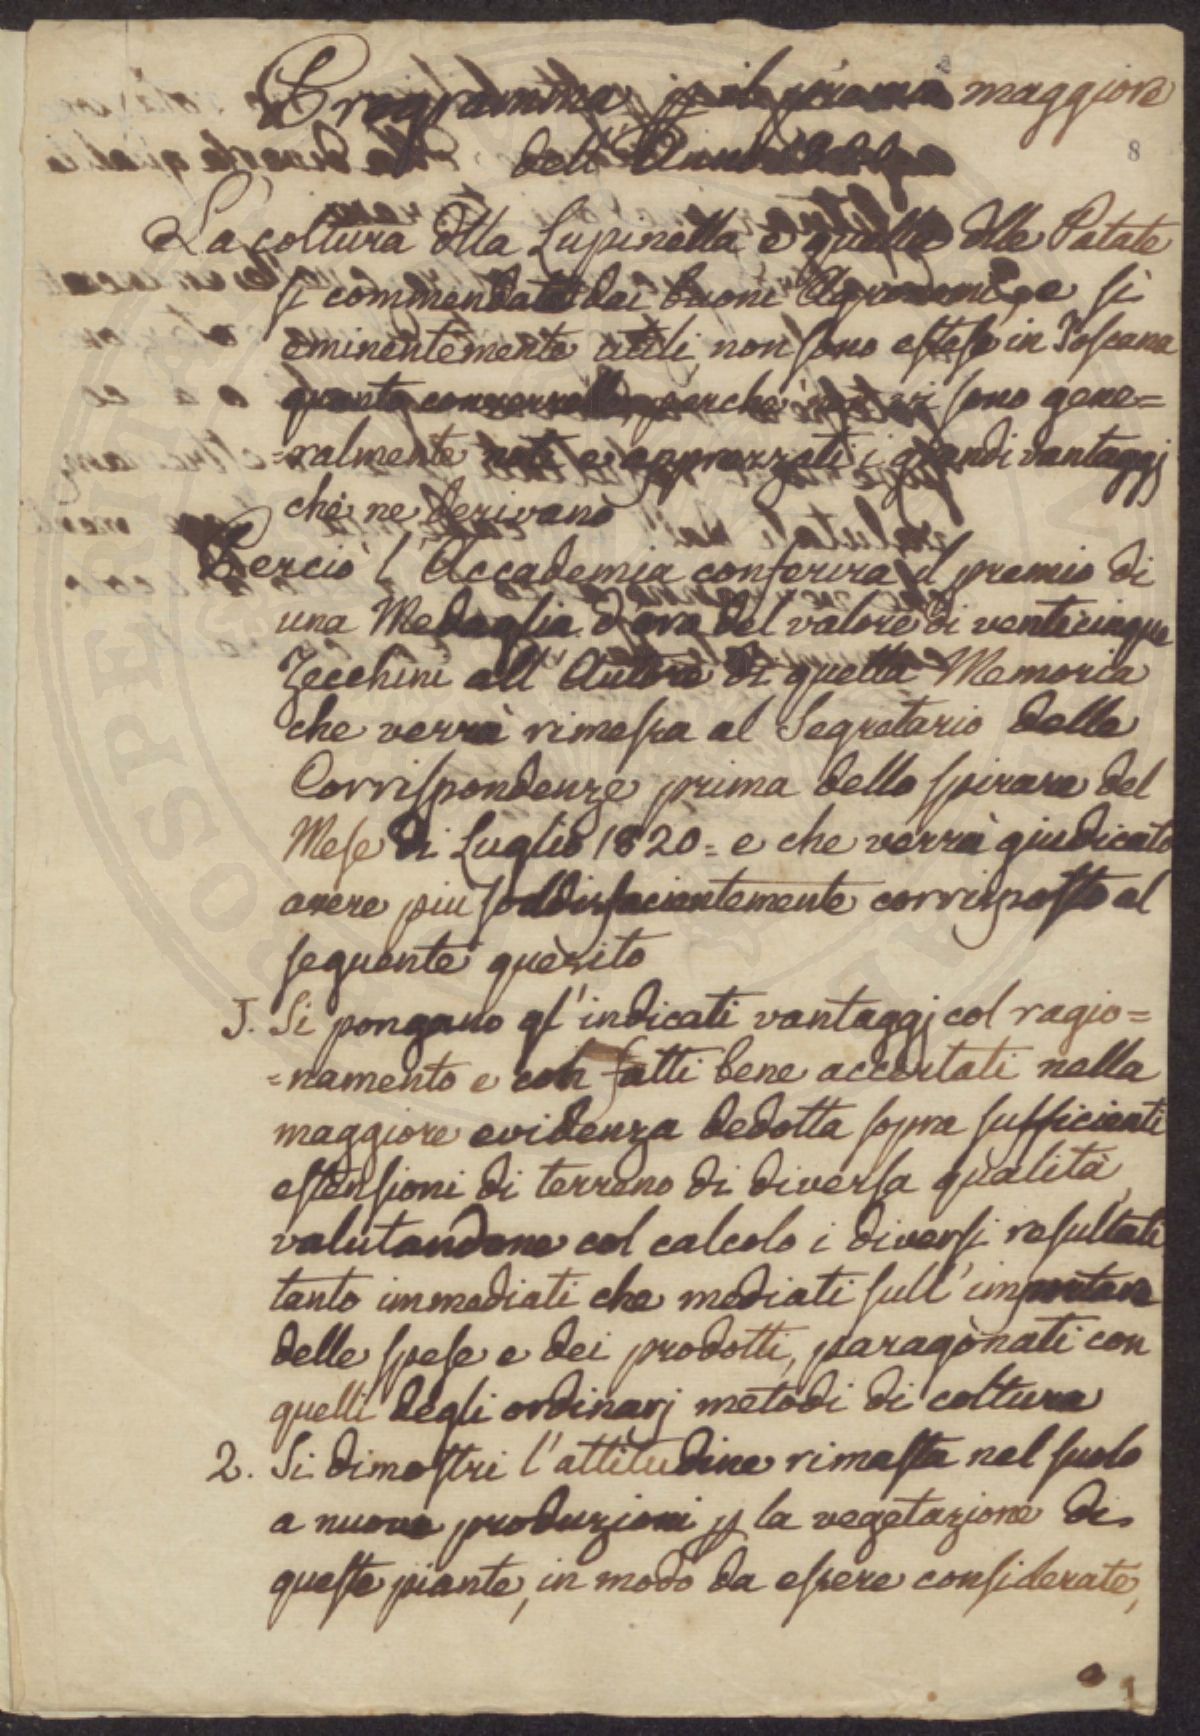 Programma p il premio maggiore
dell'Anno
8
La coltura dlla Lupinella e quella dlle Patate
si commendate dai buoni Agronomi, e sì
eminentemente utili, non sono estese in Toscana
quanto converrebbe, perchè non vi sono gene=
=ralmente noti e apprezzati i grandi vantaggj
che ne derivano
Perciò l'Accademia conferirà il premio di
una Medaglia d'oro del valore di venticinque
Zecchini all'Autore di quella Memoria
che verrà rimessa al Segretario delle
Corrispondenze prima dello spirare del
Mese di Luglio 1820 = e che verrà giudicato
avere piu soddisfacientemente corrisposto al
seguente quèsito
1. Si pongano gl'indicati vantaggj col ragio=
=namento e con fatti bene accertati nella
maggiore evidenza dedotta sopra sufficienti
estensioni di terreno di diversa qualità,
valutandone col calcolo i diversi resultati
tanto immediati che mediati sull'importare
delle spese e dei prodotti, paragonati con
quelli degli ordinarj metodi di coltura
2. Si dimostri l'attitudine rimasta nel suolo
a nuove produzioni p la vegetazione di
queste piante, in modo da essere considerate,
a
1